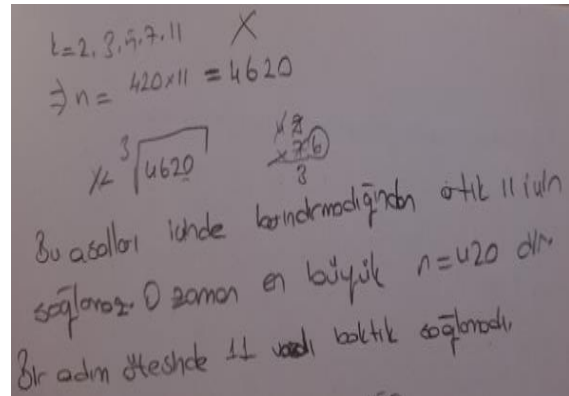 k=2, 3, 5, 7, 11 X
⇒ n = 420x11 = 4620
x< ³√4620
Bu asalları içinde barındırmadığından artık 11 için
sağlamaz. O zaman en büyük n=420 dir.
Bir adım ötesinde 11 vardı baktık sağlamadı.